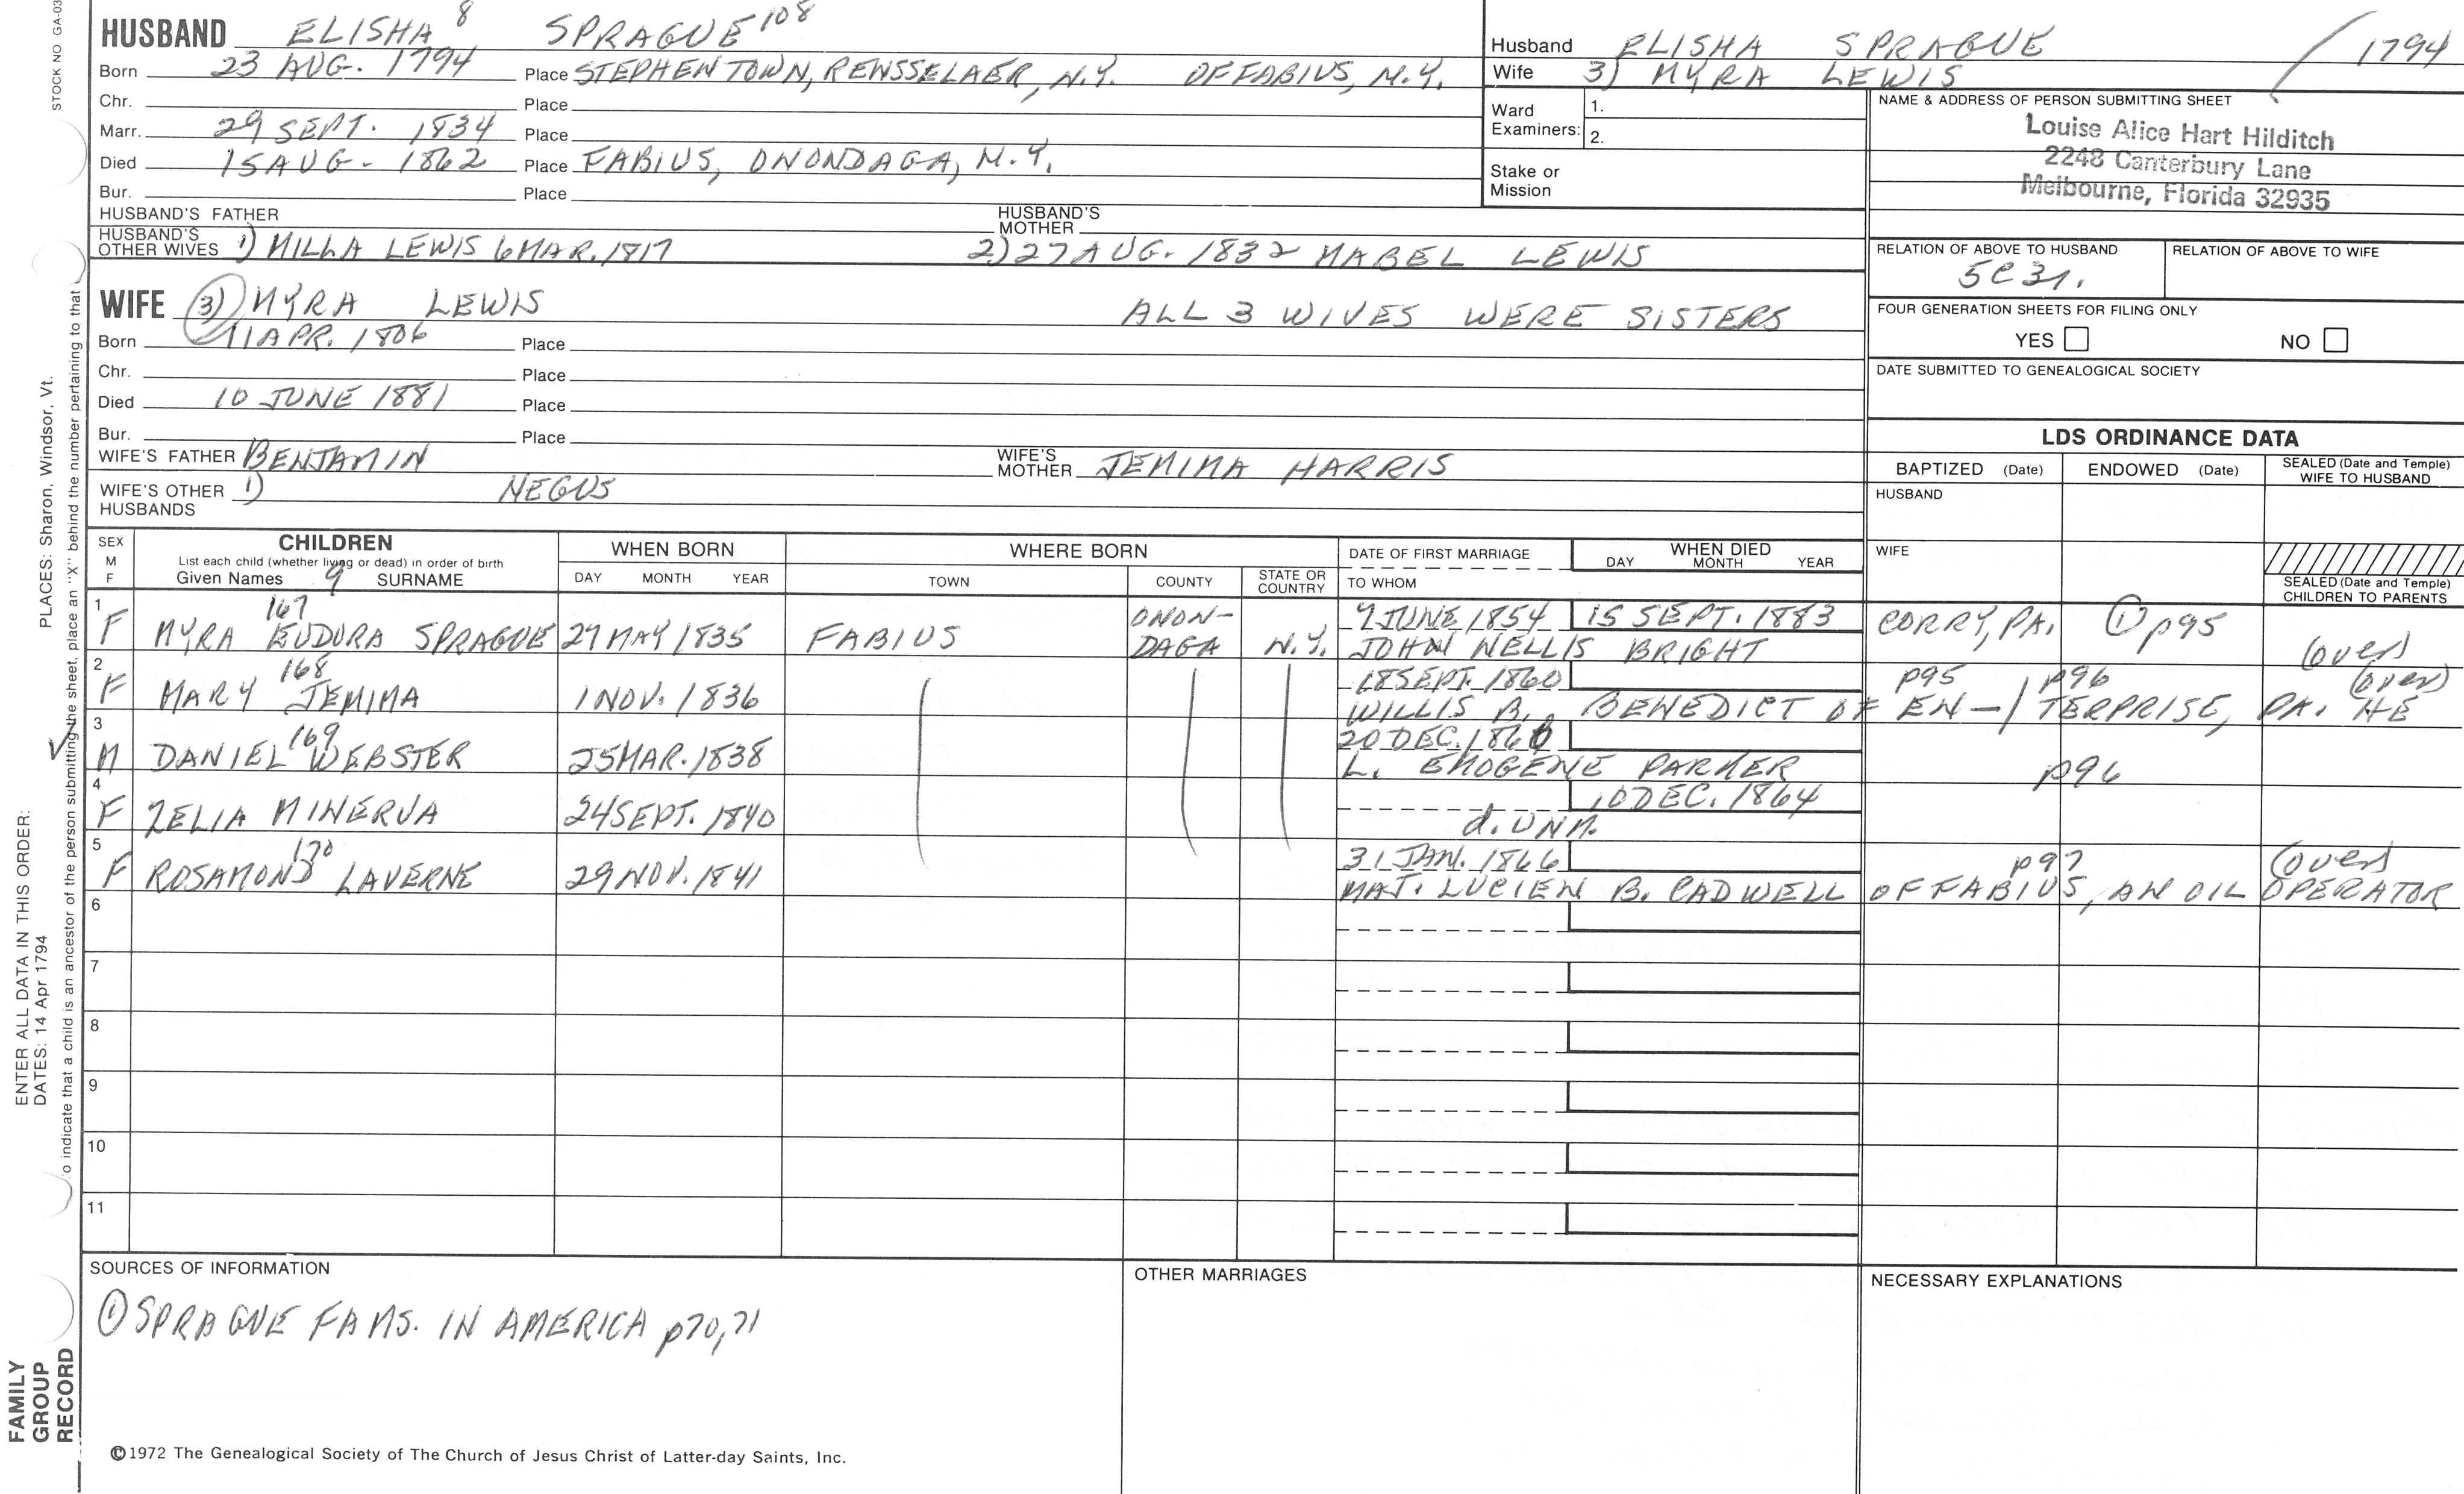 STOCK NO GA-03
HUSBAND ELISHA 8 SPRAGUE 108
Born 23 AUG. 1794 Place STEPHENTOWN, RENSSELAER, N.Y. OF FABIUS, N.Y.
Chr. Place
Marr. 29 SEPT. 1834 Place
Died 15 AUG - 1862 Place FABIUS, ONONDAGA, N.Y.
Bur. Place
HUSBAND'S FATHER HUSBAND'S MOTHER
HUSBAND'S OTHER WIVES 1) MILLA LEWIS 6 MAR. 1817 2) 27 AUG. 1832 MABEL LEWIS
Husband ELISHA SPRAGUE / 1794
Wife 3) MYRA LEWIS
Ward Examiners: 1.
2.
Stake or Mission
NAME & ADDRESS OF PERSON SUBMITTING SHEET
Louise Alice Hart Hilditch
2248 Canterbury Lane
Melbourne, Florida 32935
RELATION OF ABOVE TO HUSBAND RELATION OF ABOVE TO WIFE
FOUR GENERATION SHEETS FOR FILING ONLY
YES NO
DATE SUBMITTED TO GENEALOGICAL SOCIETY
WIFE 3) MYRA LEWIS ALL 3 WIVES WERE SISTERS
Born 11 APR. 1806 Place
Chr. Place
Died 10 JUNE 1881 Place
Bur. Place
WIFE'S FATHER BENJAMIN WIFE'S MOTHER JEMIMA HARRIS
WIFE'S OTHER HUSBANDS 1) NEGUS
LDS ORDINANCE DATA
BAPTIZED (Date) ENDOWED (Date) SEALED (Date and Temple) WIFE TO HUSBAND
HUSBAND
WIFE
SEALED (Date and Temple) CHILDREN TO PARENTS
SEX M F CHILDREN WHEN BORN WHERE BORN DATE OF FIRST MARRIAGE WHEN DIED
List each child (whether living or dead) in order of birth
Given Names 9 SURNAME DAY MONTH YEAR TOWN COUNTY STATE OR COUNTRY TO WHOM DAY MONTH YEAR
1 F MYRA EUDORA SPRAGUE 167 29 MAY 1835 FABIUS ONON-DAGA N.Y. 7 JUNE 1854 15 SEPT. 1883 CORRY, PA. 1 p95 (over)
JOHN WELLIS BRIGHT
2 F MARY JEMIMA 168 1 NOV. 1836 18 SEPT. 1860 p95 p96 (over)
WILLIS B. BENEDICT OF EN-/TERPRISE, PA. HE
3 M DANIEL WEBSTER 169 25 MAR. 1838 20 DEC. 1860
L. EMOGENE PARKER p96
4 F ZELIA MINERVA 24 SEPT. 1840 10 DEC. 1864
d. UNM.
5 F ROSAMOND LAVERNE 170 29 NOV. 1841 31 JAN. 1866 p97 (over)
MAJ. LUCIEN B. CADWELL OF FABIUS, AN OIL OPERATOR
6
7
8
9
10
11
SOURCES OF INFORMATION
① SPRAGUE FAMS. IN AMERICA p70,71
OTHER MARRIAGES
NECESSARY EXPLANATIONS
©1972 The Genealogical Society of The Church of Jesus Christ of Latter-day Saints, Inc.
PLACES: Sharon, Windsor, Vt.
o indicate that a child is an ancestor of the person submitting the sheet, place an "X" behind the number pertaining to that
ENTER ALL DATA IN THIS ORDER:
DATES: 14 Apr 1794
FAMILY
GROUP
RECORD